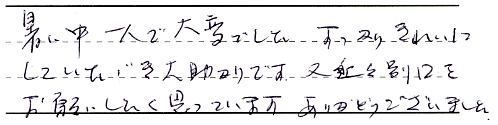 暑い中一人で大変でした すっかりきれいに
していただき大助かりです 又
お願いしたく思っています ありがとうございました